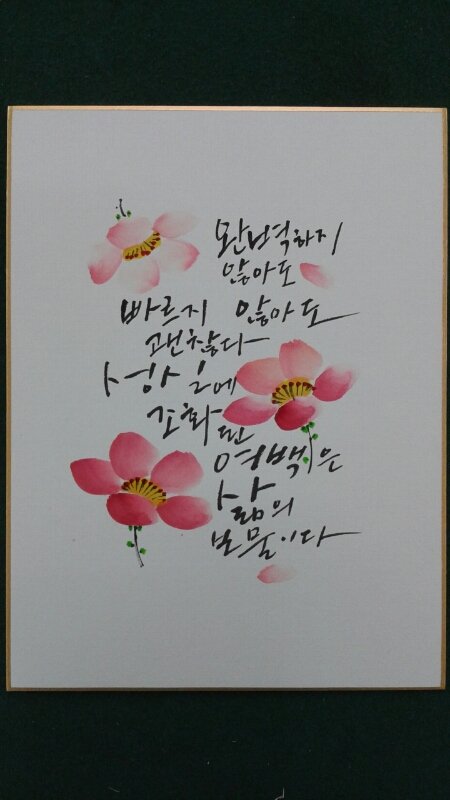 완벽하지
않아도
빠르지 않아도
괜찮다
조화된
여백은
삶의
보물이다